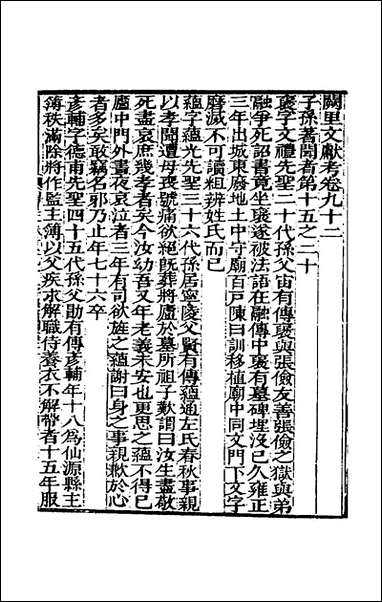 闕里文獻考卷九十二
子孫著聞者第十五之二十
裒字文禮先聖二十代孫父宙有傳裒與張儉友善張儉之獄與弟
融爭死詔書竟坐裒遂被法語在融傳中裒有墓碑埋沒已久雍正
三年出城東廢地土中守廟百戶陳曰訓移植廟中同文門下文字
磨滅不可讀粗辨姓氏而已
蘊字蘊光先聖三十六代孫居寧陵父賢有傳蘊通左氏春秋事親
以孝聞遭母喪號痛欲絕既葬將廬於墓所祖子歎謂曰汝生盡敬
死盡哀庶幾孝者矣今汝幼吾又年老義未安也更思之蘊不得已
廬中門外晝夜哀泣者三年有司欲旌之蘊謝曰身之事親歉於心
者多矣敢竊名邪乃止年七十六卒
彥輔字德甫先聖四十五代孫父勖有傳彥輔年十八為仙源縣主
簿秩滿除將作監主簿以父疾求解職侍養衣不解帶者十五年服